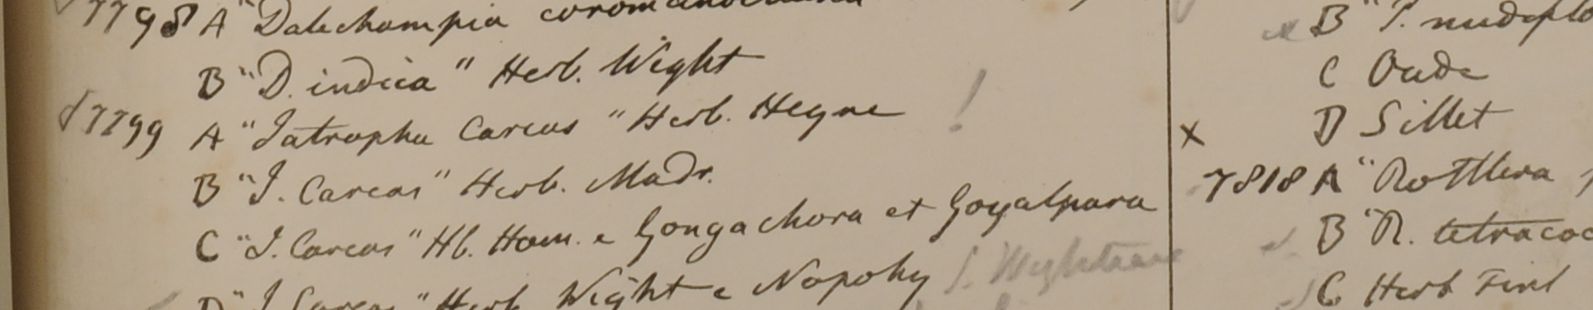 7798 A "Dalechampia
B "D. indica" Herb. Wight
7799 A "Jatropha Curcas" Herb. Heyne !
B "J. Curcas" Herb. Madr.
C "J. Curcas" Hb. Ham. e Gongachora et Goyalpara
D "J. Curcas" Herb. Wight e Nopohy
J. Wightiana
B "
C Oude
x D Sillet
7818 A "Rottlera
B "R. tetracoc
C Herb Finl